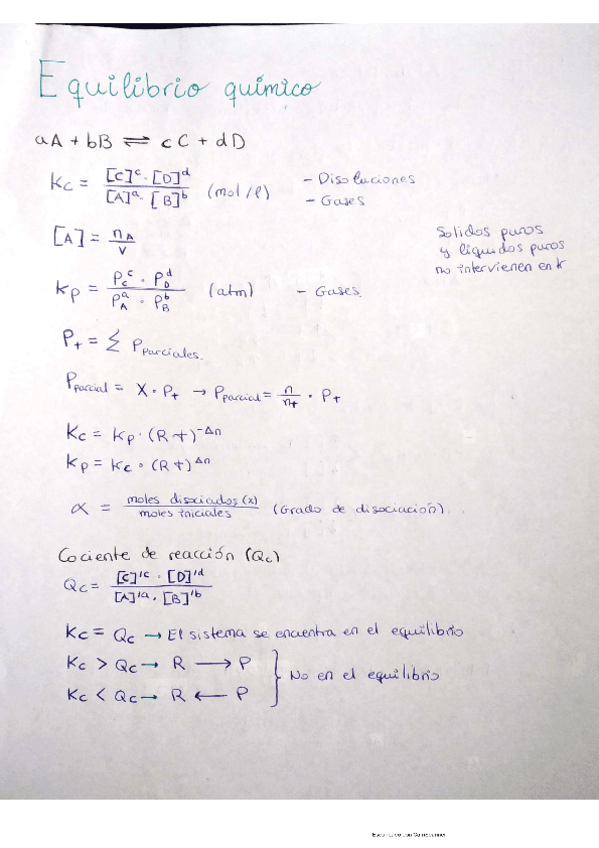 Equilibrio químico
aA + bB ⇌ cC + dD
Kc = [C]^c · [D]^d / [A]^a · [B]^b (mol/l) - Disoluciones
- Gases
[A] = nA / V
Solidos puros
y líquidos puros
no intervienen en K
Kp = P_C^c · P_D^d / P_A^a · P_B^b (atm) - Gases
P+ = Σ Pparciales.
Pparcial = X · P+ → Pparcial = n / n+ · P+
Kc = Kp · (R t)^-Δn
Kp = Kc · (R t)^Δn
α = moles disociados (x) / moles iniciales (Grado de disociación).
Cociente de reacción (Qc)
Qc = [C]'^c · [D]'^d / [A]'^a · [B]'^b
Kc = Qc → El sistema se encuentra en el equilibrio
Kc > Qc → R ⟶ P
} No en el equilibrio
Kc < Qc → R ⟵ P